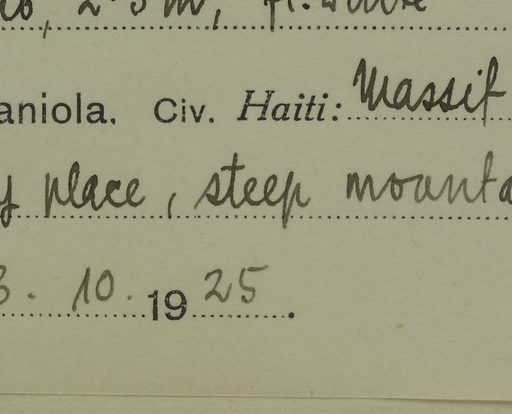 2-3 m, fl. white
aniola. Civ. Haiti: Massif
place, steep mounta
3. 10. 1925.